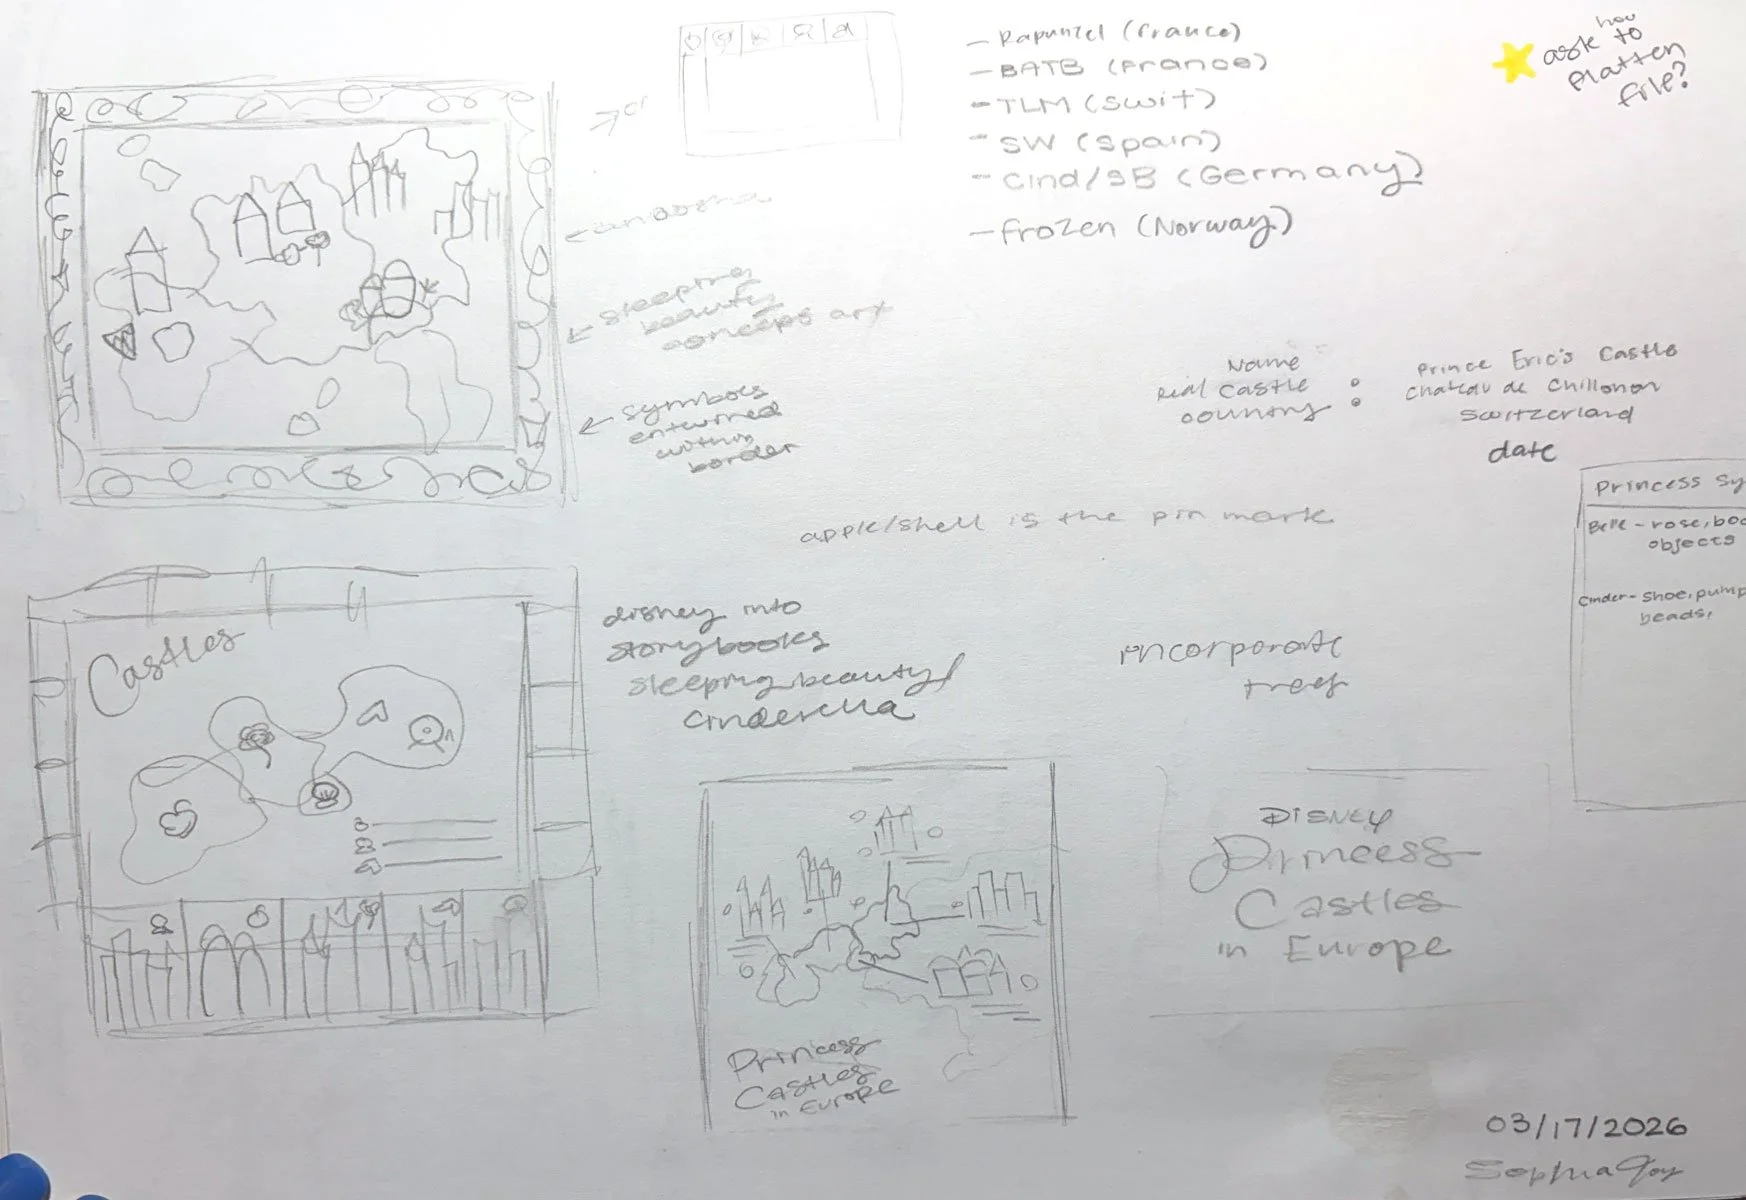 - Rapunzel (France)
- BATB (France)
- TLM (Swit)
- SW (Spain)
- Cind/SB (Germany)
- Frozen (Norway)
ask how to
flatten
file?
or
sleeping
beauty
concept art
symbols
entwined
within
border
Name
real castle
country
:
Prince Eric's Castle
Chateau de Chillonon
Switzerland
date
Princess Sy
Belle - rose, boo
objects
Cinder - Shoe, pump
beads,
apple/shell is the pin mark
Castles
disney into
storybooks
sleeping beauty/
cinderella
incorporate
trees
Princess
Castles
in Europe
Disney
Princess
Castles
in Europe
03/17/2026